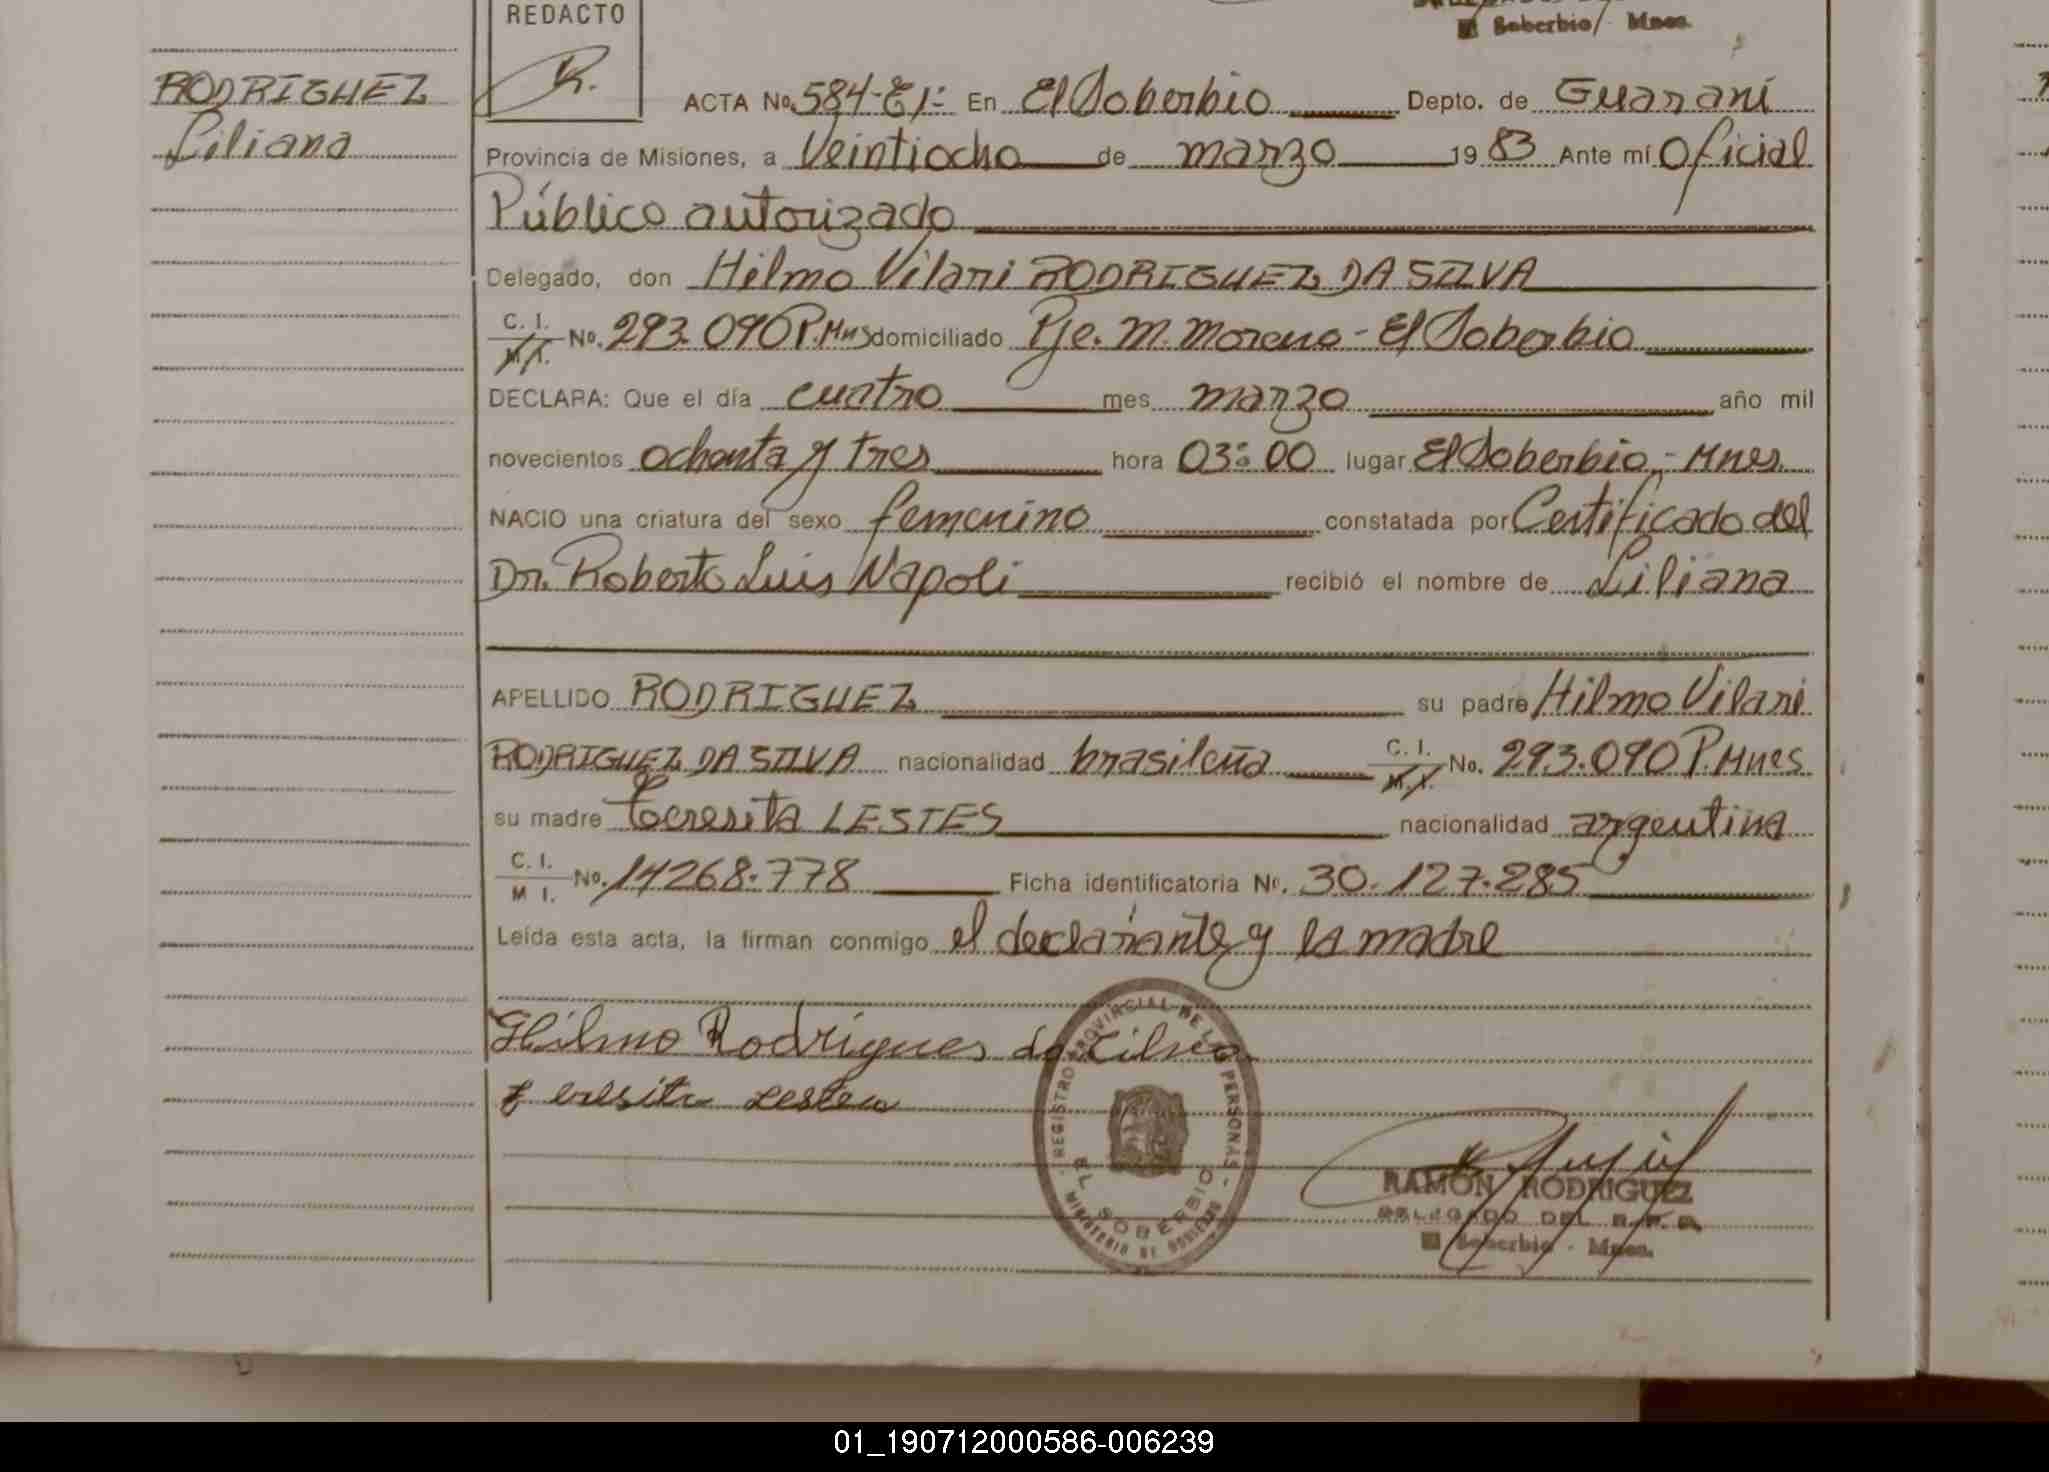 REDACTO
R.
Soberbio/ Mnes.
RODRIGUEZ
Liliana
ACTA No. 584-E/:- En El Soberbio Depto. de Guaraní
Provincia de Misiones, a Veintiocho de marzo 1983 Ante mí Oficial
Público autorizado
Delegado, don Hilmo Vilari RODRIGUEZ DA SILVA
C. I. / M. I. No. 293.090 P.Mns domiciliado Pje. M. Moreno - El Soberbio
DECLARA: Que el día cuatro mes marzo año mil
novecientos ochenta y tres hora 03:00 lugar El Soberbio,- Mnes.
NACIO una criatura del sexo femenino constatada por Certificado del
Dr. Roberto Luis Napoli recibió el nombre de Liliana
APELLIDO RODRIGUEZ su padre Hilmo Vilari
RODRIGUEZ DA SILVA nacionalidad brasileña C. I. / M. I. No. 293.090 P.Mnes
su madre Teresita LESTES nacionalidad argentina
C. I. / M I. No. 14268.778 Ficha identificatoria No. 30.127.285
Leída esta acta, la firman conmigo el declarante y la madre
Hilmo Rodrigues da Cilva
Teresita Lestes
REGISTRO PROVINCIAL DE LAS PERSONAS
EL SOBERBIO
MINISTERIO DE GOBIERNO
RAMON RODRIGUEZ
DELEGADO DEL R.P.P.
El Soberbio - Mnes.
01_190712000586-006239